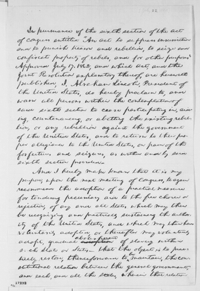 In pursuance of the sixth section of the act
of congress entitled "An act to suppress insurrection
and to punish treason and rebellion, to seize and
confiscate property of rebels, and for other purposes"
Approved July 17, 1862, and which act, and the
Joint Resolution explanatory thereof, are herewith
published, I, Abraham Lincoln, President of
the United States, do hereby proclaim to, and
warn all persons within the contemplation of
said sixth section to cease participating in, aid-
ing, countenancing, or abetting the existing rebel-
lion, or any rebellion against the government
of the United States, and to return to their pro-
per allegiance to the United States, on pain of the
forfeitures and seizures, as within and by said
sixth section provided
And I hereby make known that it is my
purpose, upon the next meeting of congress, to again
recommend the adoption of a practical measure
for tendering pecuniary aid to the free choice or
rejection, of any and all States which may then
be recognizing and practically sustaining the authori-
ty of the United States, and which may then have
voluntarily adopted, or thereafter may voluntarily
adopt, gradual abolishment of slavery within
such State or States; that the object is to practi-
cally restore, thenceforward to maintain, the con-
stitutional relation between the general government,
and each, and all the States, wherein that relation